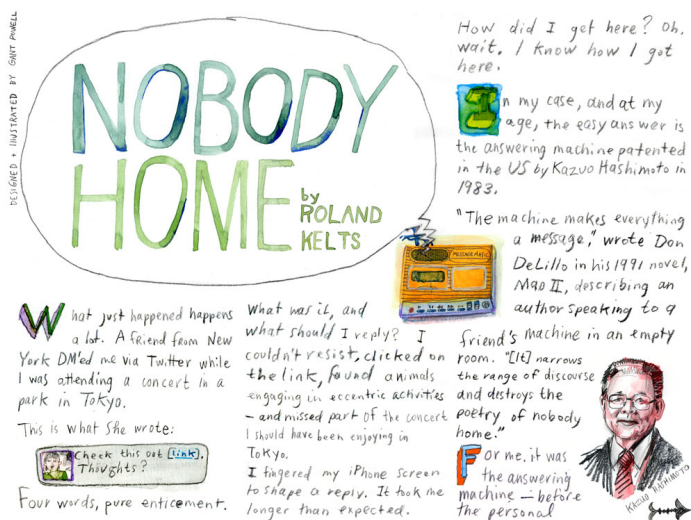 DESIGNED + ILLUSTRATED BY GANT POWELL
NOBODY
HOME
by
ROLAND
KELTS
What just happened happens
a lot. A friend from New
York DM'ed me via Twitter while
I was attending a concert in a
park in Tokyo.
This is what she wrote:
Check this out [link].
Thoughts?
Four words, pure enticement.
What was it, and
what should I reply? I
couldn't resist, clicked on
the link, found animals
engaging in eccentric activities
— and missed part of the concert
I should have been enjoying in
Tokyo.
I fingered my iPhone screen
to shape a reply. It took me
longer than expected.
How did I get here? Oh,
wait. I know how I got
here.
In my case, and at my
age, the easy answer is
the answering machine patented
in the US by Kazuo Hashimoto in
1983.
"The machine makes everything
a message," wrote Don
DeLillo in his 1991 novel,
Mao II, describing an
author speaking to a
friend's machine in an empty
room. "[It] narrows
the range of discourse
and destroys the
poetry of nobody
home."
For me, it was
the answering
machine — before
the personal
KAZUO HASHIMOTO